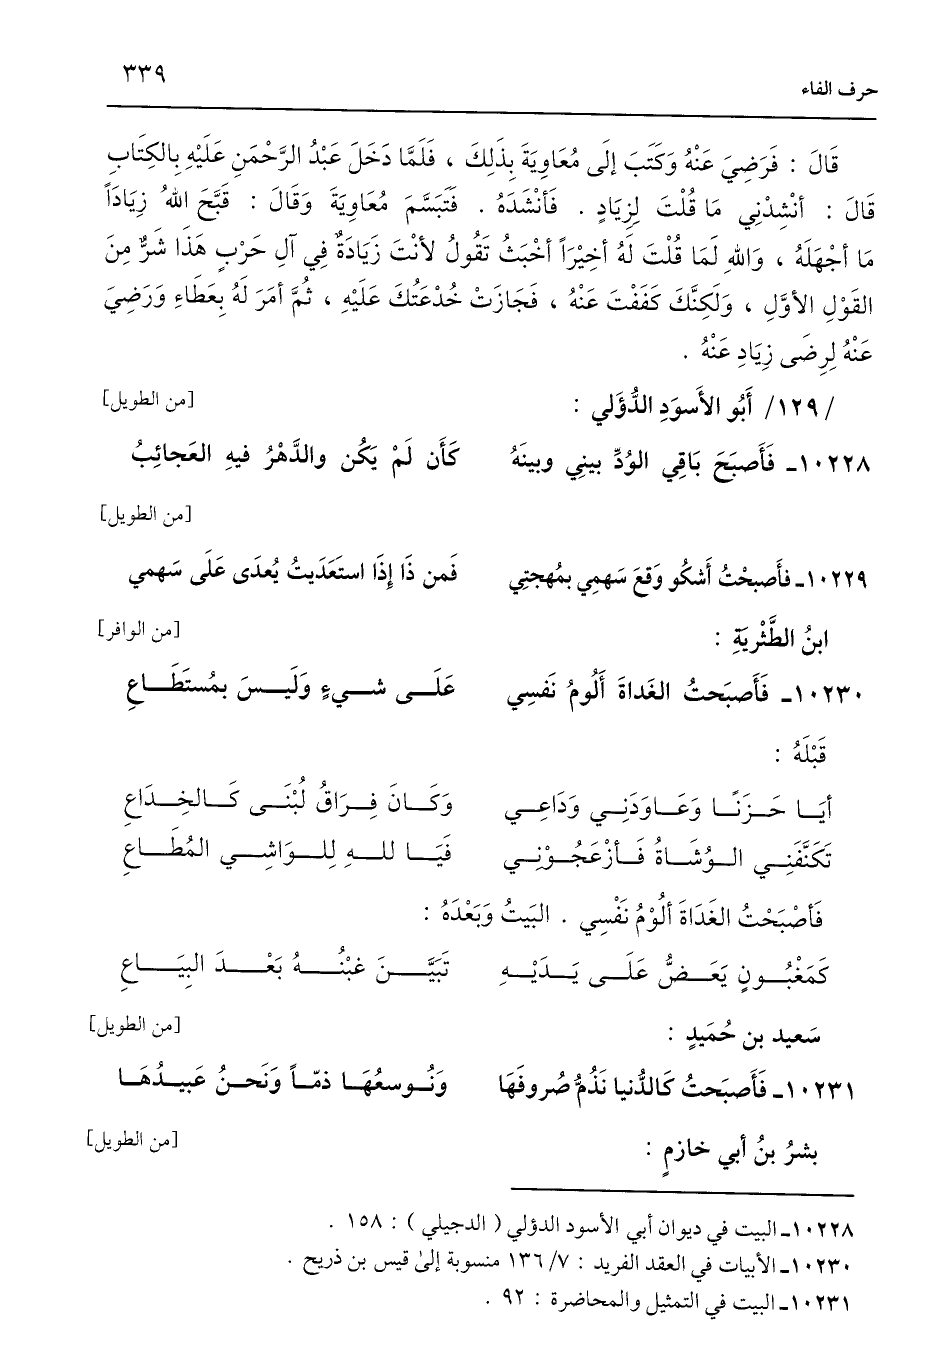 حرف الفاء ٣٣٩
قَالَ : فَرَضِيَ عَنْهُ وَكَتَبَ إلَى مُعَاوِيَةَ بِذَلِكَ ، فَلَمَّا دَخَلَ عَبْدُ الرَّحْمَنِ عَلَيْهِ بِالكِتَابِ
قَالَ : أنْشِدْنِي مَا قُلْتَ لِزِيَادٍ . فَأنْشَدَهُ . فَتَبَسَّمَ مُعَاوِيَةَ وَقَالَ : قَبَّحَ اللهُ زِيَادَاً
مَا أجْهَلَهُ ، وَاللهِ لَمَا قُلْتَ لَهُ أخِيْرَاً أخْبَثُ تَقُولُ لأنْتَ زَيَادَةٌ فِي آلِ حَرْبٍ هَذَا شَرٌّ مِنَ
القَوْلِ الأوَّلِ ، وَلَكِنَّكَ كَفَفْتَ عَنْهُ ، فَجَازَتْ خُدْعَتُكَ عَلَيْهِ ، ثُمَّ أمَرَ لَهُ بِعَطَاءِ وَرَضِيَ
عَنْهُ لِرِضَى زِيَادِ عَنْهُ .
/١٢٩/ أَبُو الأَسوَدِ الدُّؤَلي : [من الطويل]
١٠٢٢٨ـ فَأَصبَحَ بَاقِي الوُدِّ بينِي وبينَهُ كَأَن لَمْ يَكُن والدَّهْرُ فيهِ العَجائِبُ
[من الطويل]
١٠٢٢٩ـ فأصبحْتُ أَشكُو وَقعَ سَهمِي بمُهجتِي فَمن ذَا إِذَا استَعَديتُ يُعدَى عَلَى سَهمِي
ابنُ الطَّثْرِيَةِ : [من الوافر]
١٠٢٣٠ـ فَأَصبَحتُ الغَداةَ أَلُومُ نَفسِي عَلَى شيءٍ وَلَيسَ بمُستَطَاعِ
قَبْلَهُ :
أيَا حَزَنًا وَعَاوَدَنِي وَدَاعِي وَكَانَ فِرَاقُ لُبْنَى كَالخِدَاعِ
تَكَنَّفَنِي الوُشَاةُ فَأزْعَجُوْنِي فَيَا للهِ لِلوَاشِي المُطَاعِ
فَأصْبَحْتُ الغَدَاةَ ألُوْمُ نَفْسِي . البَيتُ وَبَعْدَهُ :
كَمَغْبُونٍ يَعَضُّ عَلَى يَدَيْهِ تَبَيَّنَ غبْنُهُ بَعْدَ البِيَاعِ
سَعيد بن حُمَيدٍ : [من الطويل]
١٠٢٣١ـ فَأَصبَحتُ كَالدُّنيا نَذُمُّ صُروفَهَا وَنُوسعُهَا ذمّاً ونَحنُ عَبيدُهَا
بشرُ بنُ أبي خازمٍ : [من الطويل]
١٠٢٢٨ـ البيت في ديوان أبي الأسود الدؤلي ( الدجيلي ) : ١٥٨ .
١٠٢٣٠ـ الأبيات في العقد الفريد : ٧/ ١٣٦ منسوبة إلىٰ قيس بن ذريح .
١٠٢٣١ـ البيت في التمثيل والمحاضرة : ٩٢ .